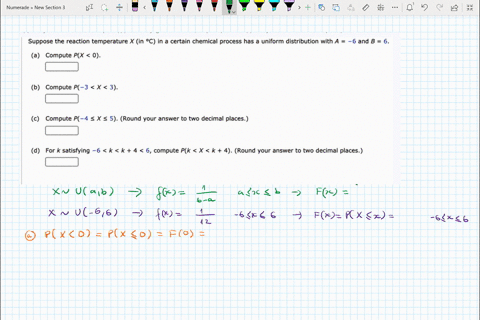 Numerade » New Section 3
Suppose the reaction temperature X (in °C) in a certain chemical process has a uniform distribution with A = −6 and B = 6.
(a) Compute P(X < 0).
(b) Compute P(−3 < X < 3).
(c) Compute P(−4 ≤ X ≤ 5). (Round your answer to two decimal places.)
(d) For k satisfying −6 < k < k + 4 < 6, compute P(k < X < k + 4). (Round your answer to two decimal places.)
X ~ U(a,b) → f(x) = 1/(b-a) a ≤ x ≤ b → F(x) =
X ~ U(-6,6) → f(x) = 1/12 -6 ≤ x ≤ 6 → F(x) = P(X ≤ x) = -6 ≤ x ≤ 6
P(X < 0) = P(X ≤ 0) = F(0) =